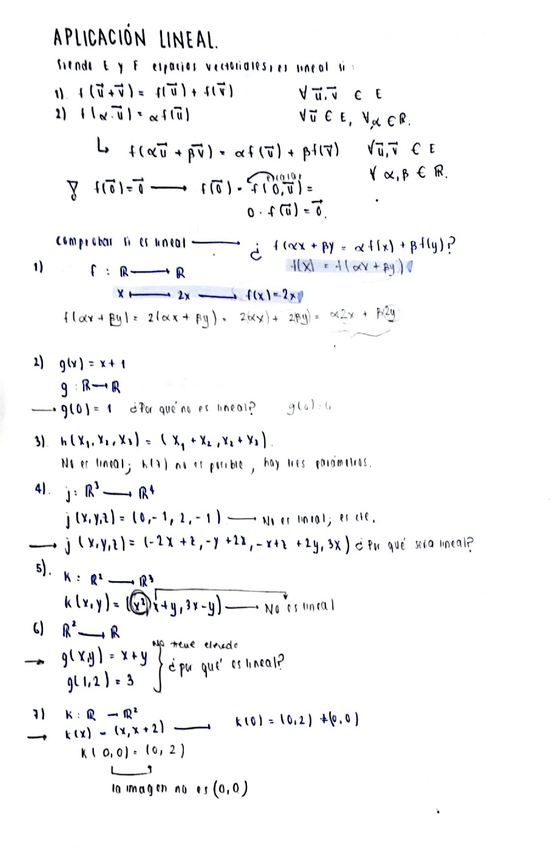 APLICACIÓN LINEAL.
Siendo E y F espacios vectoriales, es lineal si:
1) f(u⃗+v⃗) = f(u⃗) + f(v⃗) ∀ u⃗,v⃗ ∈ E
2) f(α·u⃗) = αf(u⃗) ∀ u⃗ ∈ E, ∀α ∈ R.
↳ f(αu⃗ + βv⃗) = αf(u⃗) + βf(v⃗) ∀ u⃗,v⃗ ∈ E
∀ α,β ∈ R.
f(0⃗)=0⃗ ⟶ f(0⃗) = f(0,u⃗) =
0·f(u⃗)=0⃗.
Comprobar si es lineal ⟶ ¿ f(αx + βy = αf(x) + βf(y)?
1) f(x) = f(αx + βy)
f : R ⟶ R
x ⟼ 2x ⟶ f(x)=2x
f(αx + βy) = 2(αx + βy) = 2(αx) + 2βy) = α2x + β2y
2) g(x) = x+1
g : R → R
⟶ g(0) = 1 ¿Por qué no es lineal?
3) h(x₁, x₂, x₃) = (x₁ + x₂, x₂ + x₃).
No es lineal; h(7) no es posible, hay tres parámetros.
4). j : R³ ⟶ R⁴
j (x,y,z) = (0,-1, 2, -1) ⟶ No es lineal; es cte.
⟶ j (x,y,z) = (-2x + z, -y + 2x, -x+z + 2y, 3x) ¿Por qué sería lineal?
5). K : R² ⟶ R³
K(x,y) = (x², x+y, 3x-y) ⟶ No es lineal
6) R² ⟶ R
→ g(x,y) = x+y
g(1,2) = 3
No tiene elevado
¿por qué es lineal?
7) K : R → R²
→ K(x) = (x, x+2) ⟶ K(0) = (0,2) ≠ (0,0)
K( 0,0) = (0, 2)
la imagen no es (0,0)